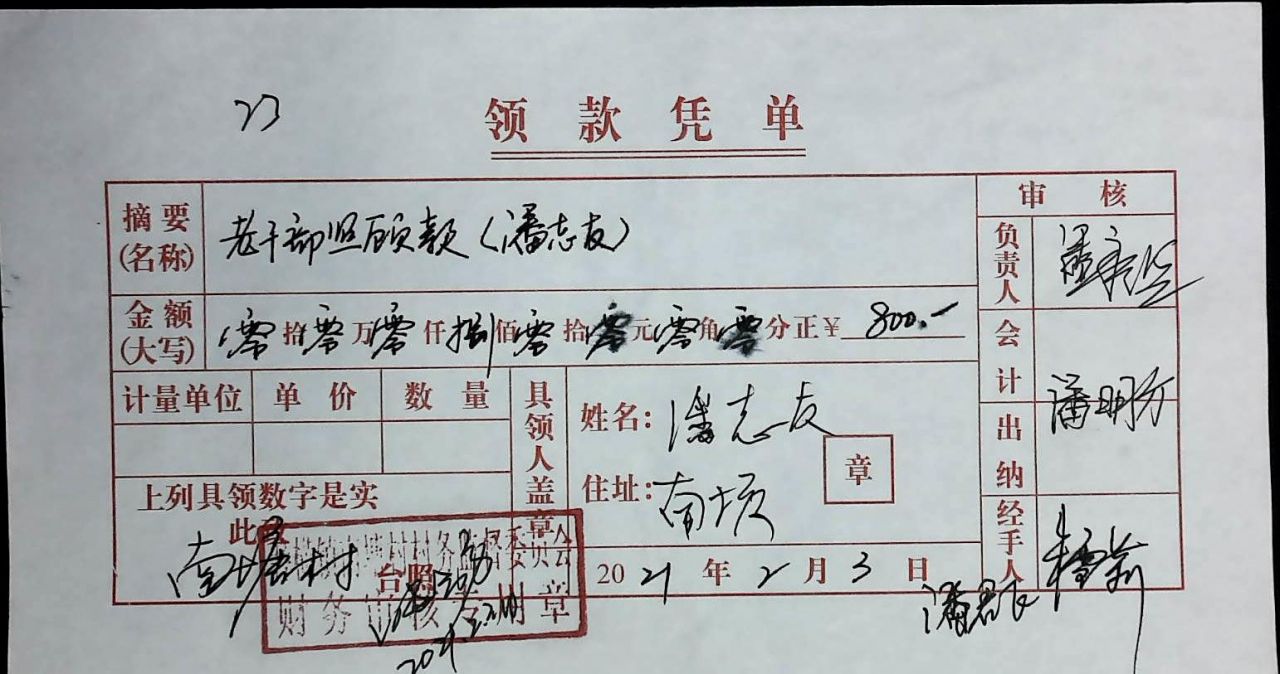 23
领款凭单
摘要(名称) 老干部照顾款（潘志友）
审核
负责人
金额(大写) 零拾零万零仟捌佰零拾零元零角零分正￥800.-
会计 潘明方
计量单位 单价 数量
具领人盖章
姓名：潘志友
章
住址：南坝
出纳
上列具领数字是实
此致
经手人
南塘村
台照
财务审核专用章
2021年2月3日